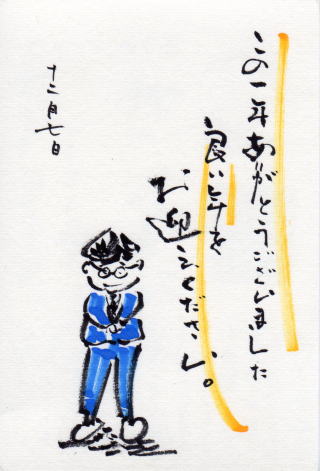 この一年ありがとうございました
良い年を
お迎えください。
十二月七日